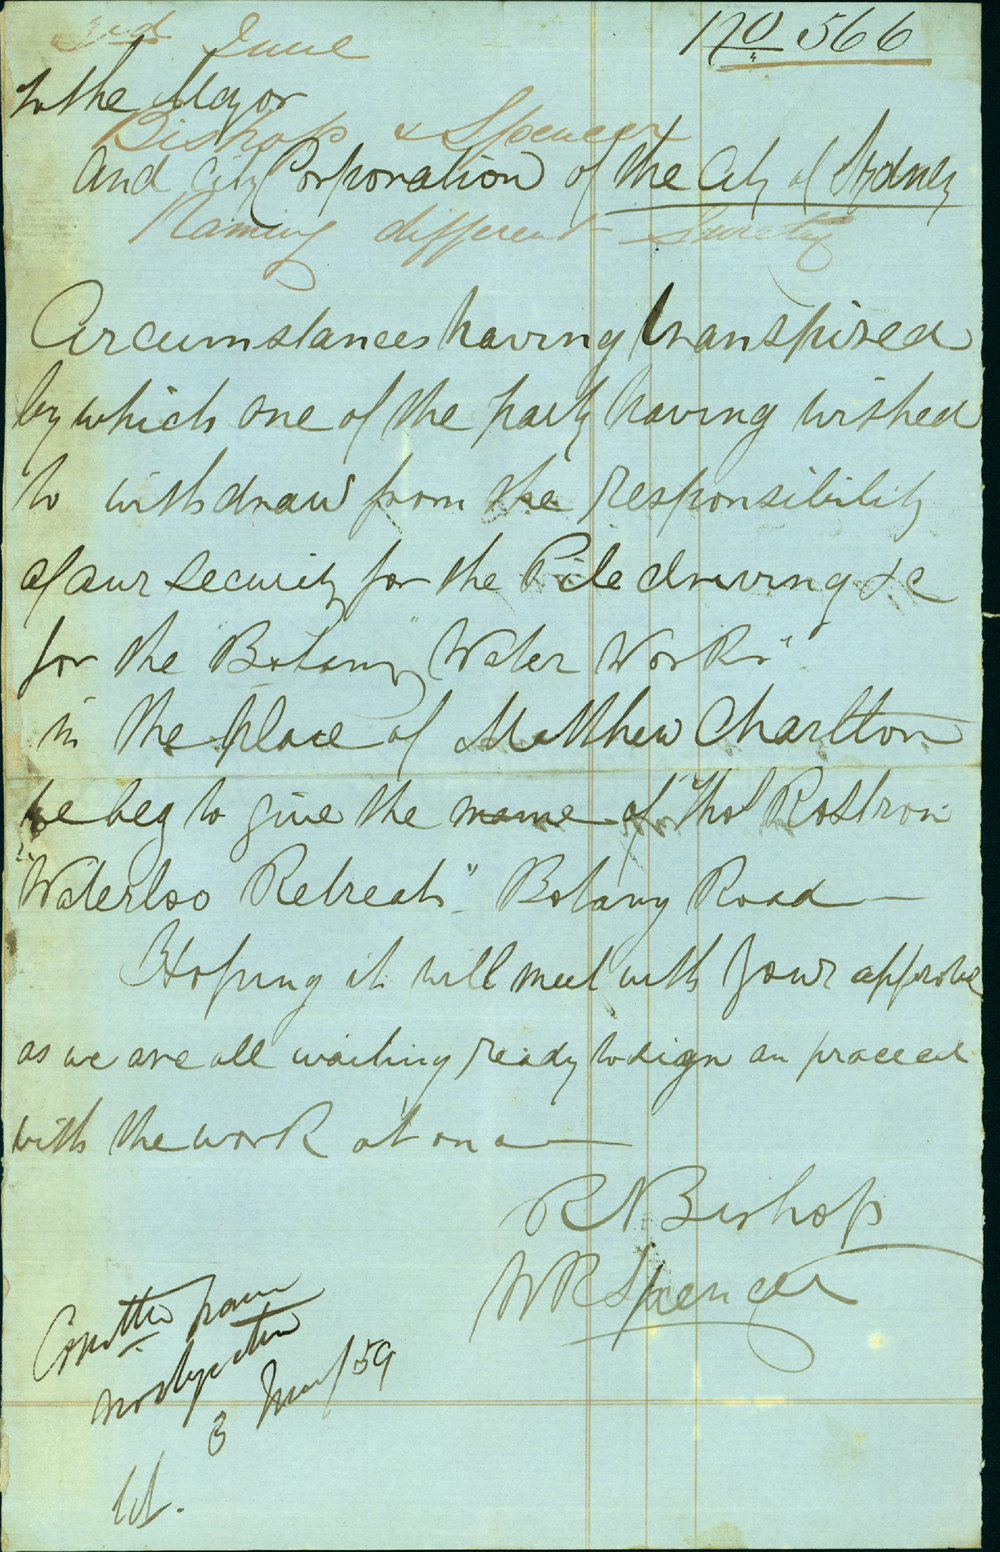 3rd June
No 566
to the Mayor
Bishop & Spencer
and City Corporation of the City of Sydney
Naming different Surety
Circumstances having transpired
by which one of the party having wished
to withdraw from the responsibility
of our Security for the Pile driving &c
for the "Botany" Water Works"
in the place of Matthew Charlton
we beg to give the name of "Thos Rostron
"Waterloo Retreat" Botany Road
Hoping it will meet with your approval
as we are all waiting ready to sign an proceed
with the work at once
R N Bishop
W R Spencer
Comttee have
no objection
3 June/59